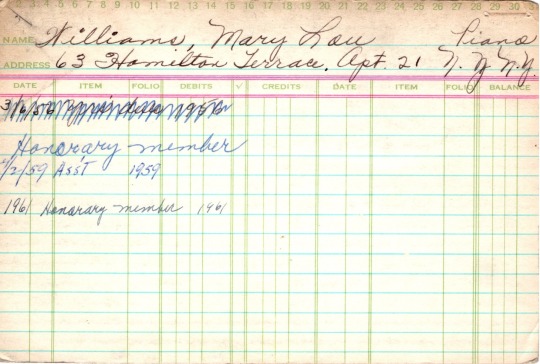 2 3 4 5 6 7 8 9 10 11 12 13 14 15 16 17 18 19 20 21 22 23 24 25 26 27 28 29 30 31
NAME Williams, Mary Lou Piano
ADDRESS 63 Hamilton Terrace, Apt. 21 N. Y. N.Y.
DATE ITEM FOLIO DEBITS √ CREDITS DATE ITEM FOLIO BALANCE
Honorary member
/2/59 Ass't 1959
1961 Honorary member 1961